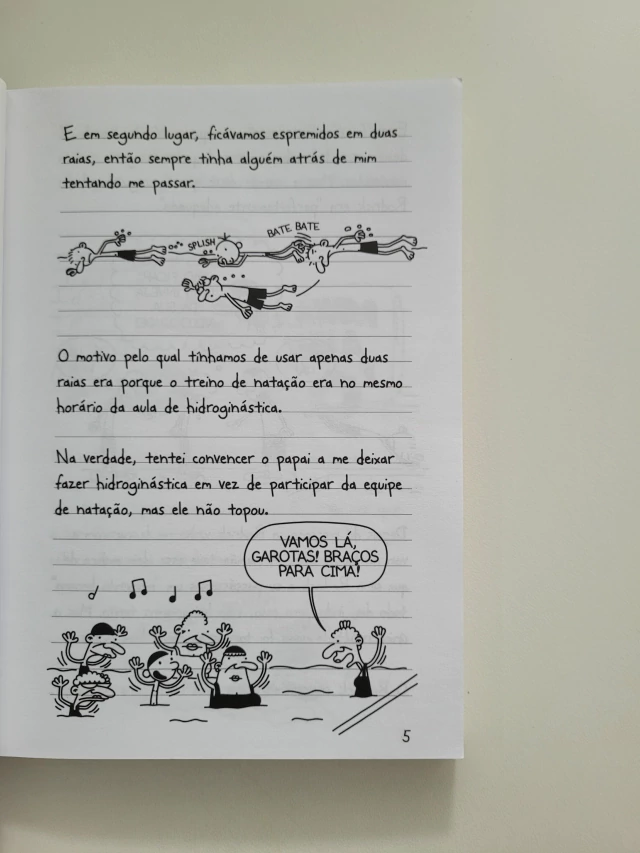 E em segundo lugar, ficávamos espremidos em duas
raias, então sempre tinha alguém atrás de mim
tentando me passar.
SPLISH
BATE BATE
O motivo pelo qual tínhamos de usar apenas duas
raias era porque o treino de natação era no mesmo
horário da aula de hidroginástica.
Na verdade, tentei convencer o papai a me deixar
fazer hidroginástica em vez de participar da equipe
de natação, mas ele não topou.
VAMOS LÁ,
GAROTAS! BRAÇOS
PARA CIMA!
5